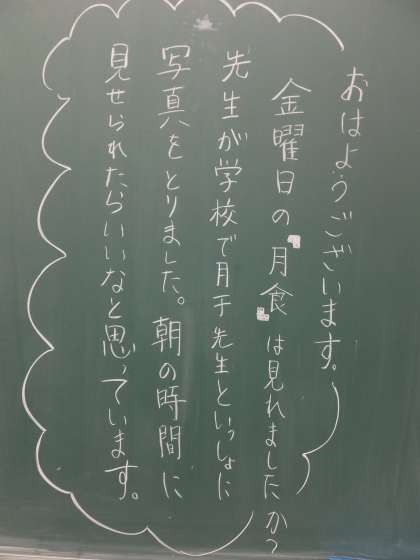 おはようございます。
金曜日の『月食』は見れましたか?
先生が学校で月干先生といっしょに
写真をとりました。朝の時間に
見せられたらいいなと思っています。